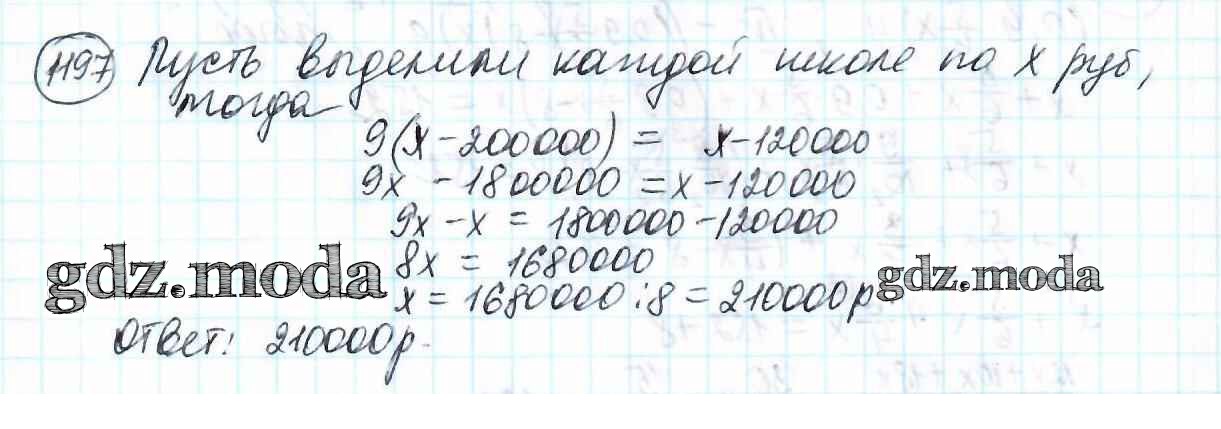 1197 Пусть выделили каждой школе по х руб,
тогда
9(х-200000) = х-120000
9х - 1800000 = х-120000
9х - х = 1800000-120000
8х = 1680000
х = 1680000:8 = 210000р
gdz.moda gdz.moda
Ответ: 210000р.